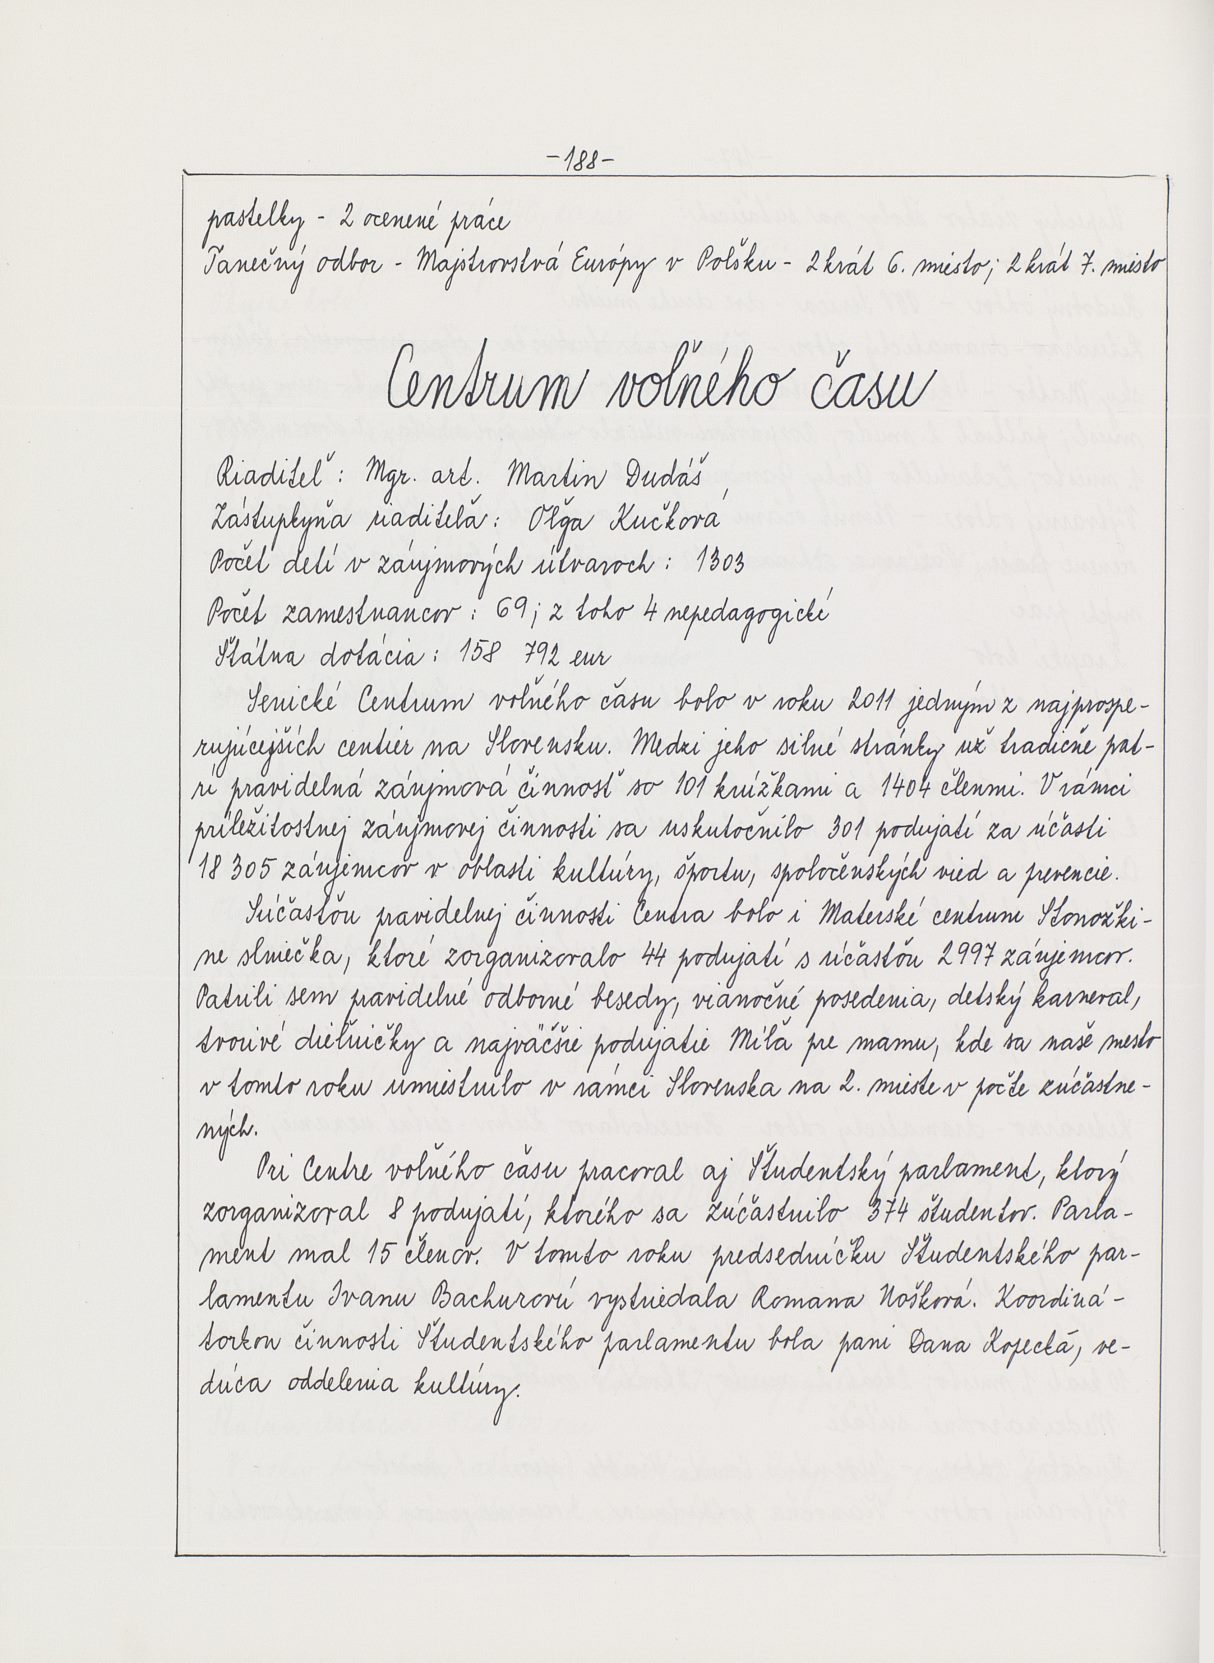 -188-
pastelky - 2 ocenené práce
Tanečný odbor - Majstrovstvá Európy v Poľsku - 2 krát 6. miesto; 2 krát 7. miesto
Centrum voľného času
Riaditeľ: Mgr. art. Martin Dudáš
Zástupkyňa riaditeľa: Oľga Kučková
Počet detí v záujmových útvaroch: 1303
Počet zamestnancov: 69; z toho 4 nepedagogické
Štátna dotácia: 158 792 eur
Senické Centrum voľného času bolo v roku 2011 jedným z najprospe-
rujúcejších centier na Slovensku. Medzi jeho silné stránky už tradične pat-
rí pravidelná záujmová činnosť so 101 krúžkami a 1404 členmi. V rámci
príležitostnej záujmovej činnosti sa uskutočnilo 301 podujatí za účasti
18 305 záujemcov v oblasti kultúry, športu, spoločenských vied a prevencie.
Súčasťou pravidelnej činnosti Centra bolo i Materské centrum Stonožki-
ne slniečka, ktoré zorganizovalo 44 podujatí s účasťou 2997 záujemcov.
Patrili sem pravidelné odborné besedy, vianočné posedenia, detský karneval,
tvorivé dielničky a najväčšie podujatie Míľa pre mamu, kde sa naše mesto
v tomto roku umiestnilo v rámci Slovenska na 2. mieste v počte zúčastne-
ných.
Pri Centre voľného času pracoval aj Študentský parlament, ktorý
zorganizoval 8 podujatí, ktorého sa zúčastnilo 374 študentov. Parla-
ment mal 15 členov. V tomto roku predsedníčku Študentského par-
lamentu Ivanu Bachurovú vystriedala Romana Nošková. Koordiná-
torkou činnosti Študentského parlamentu bola pani Dana Kopecká, ve-
dúca oddelenia kultúry.